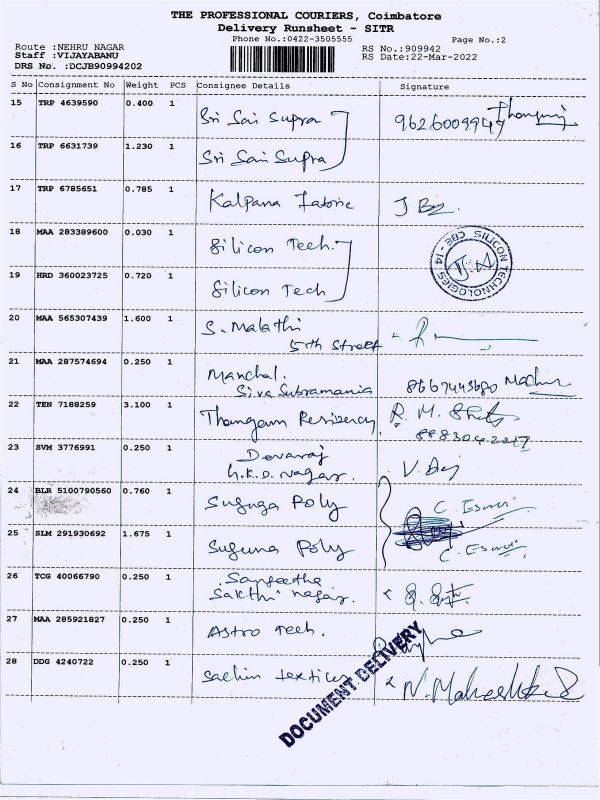 THE PROFESSIONAL COURIERS, Coimbatore
Delivery Runsheet - SITR
Phone No.:0422-3505555
Page No.:2
Route :NEHRU NAGAR
RS No.:909942
Staff :VIJAYABANU
RS Date:22-Mar-2022
DRS No. :DCJB90994202
S No Consignment No Weight PCS Consignee Details Signature
15 TRP 4639590 0.400 1 Sri Sai Supra 9626009949
16 TRP 6631739 1.230 1 Sri Sai Supra
17 TRP 6785651 0.785 1 Kalpana Fabric
18 MAA 283389600 0.030 1 Silicon Tech.
SILICON TECHNOLOGIES CBE-14
19 HRD 360023725 0.720 1 Silicon Tech
20 MAA 565307439 1.600 1 S. Malathi
5th Street
21 MAA 287574694 0.250 1 Manchal.
Siva Subramania 8667443680
22 TEN 7188259 3.100 1 Thangam Residency R. M.
23 SVM 3776991 0.250 1 Devaraj
G.K.D. nagar.
24 BLR 5100790560 0.760 1 Suguna Poly C. Eswari
25 SLM 291930692 1.675 1 Suguna Poly C. Eswari
26 TCG 40066790 0.250 1 Sangeetha
Sakthi nagar.
27 MAA 285921827 0.250 1 Astro Tech.
28 DDG 4240722 0.250 1 Sachin textiles
DOCUMENT DELIVERY